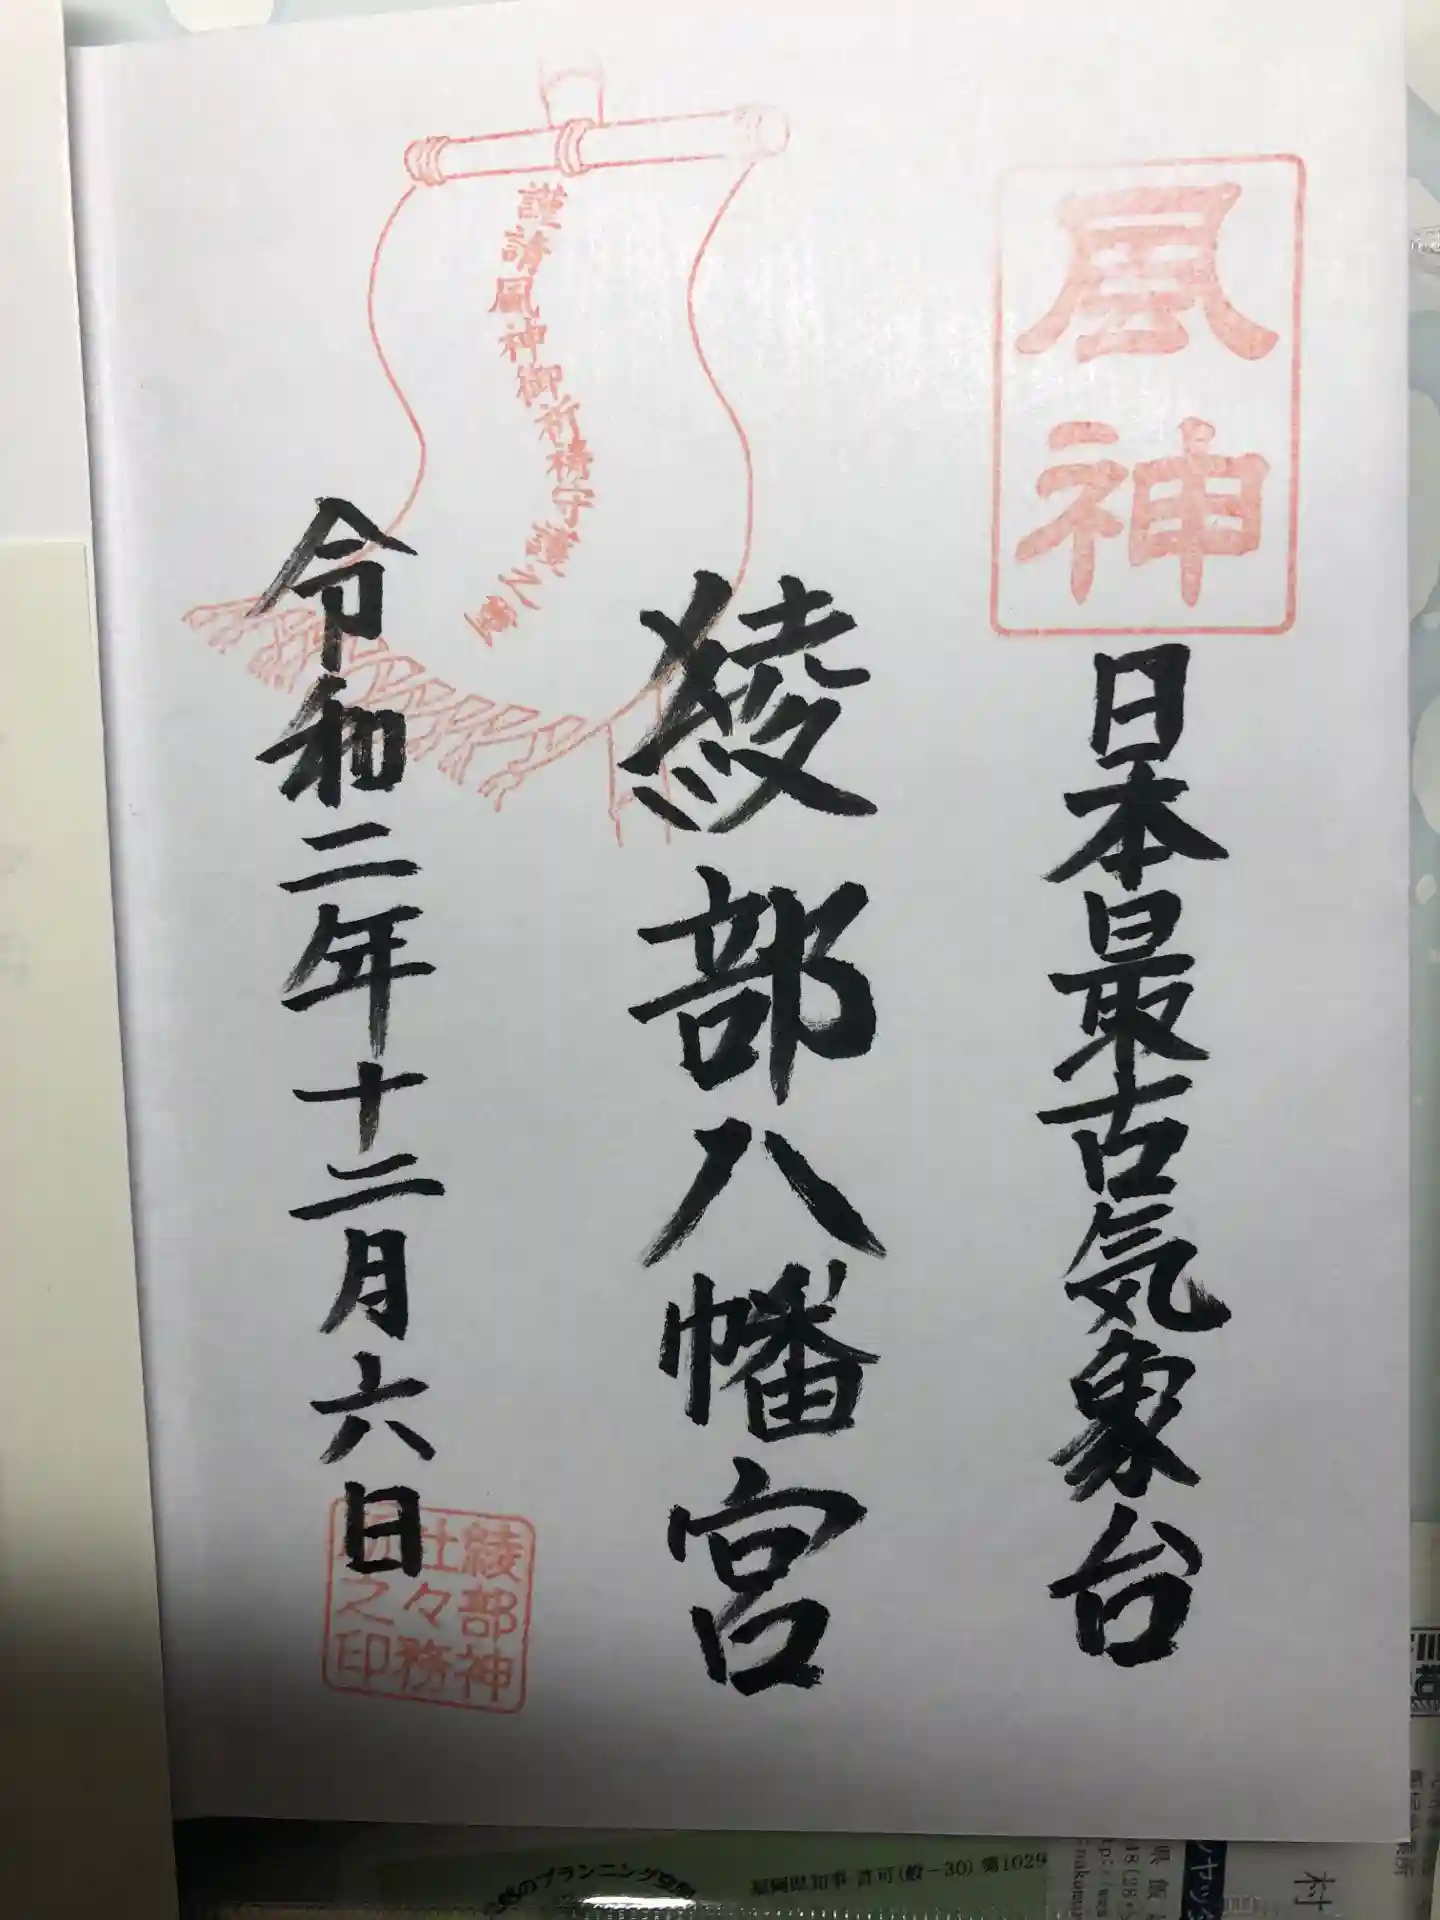 風神
日本最古気象台
綾部八幡宮
謹請風神御祈祷守護之璽
令和二年十二月六日
綾部神
社々務
之印
福岡県知事 許可(般-30) 第1029
村